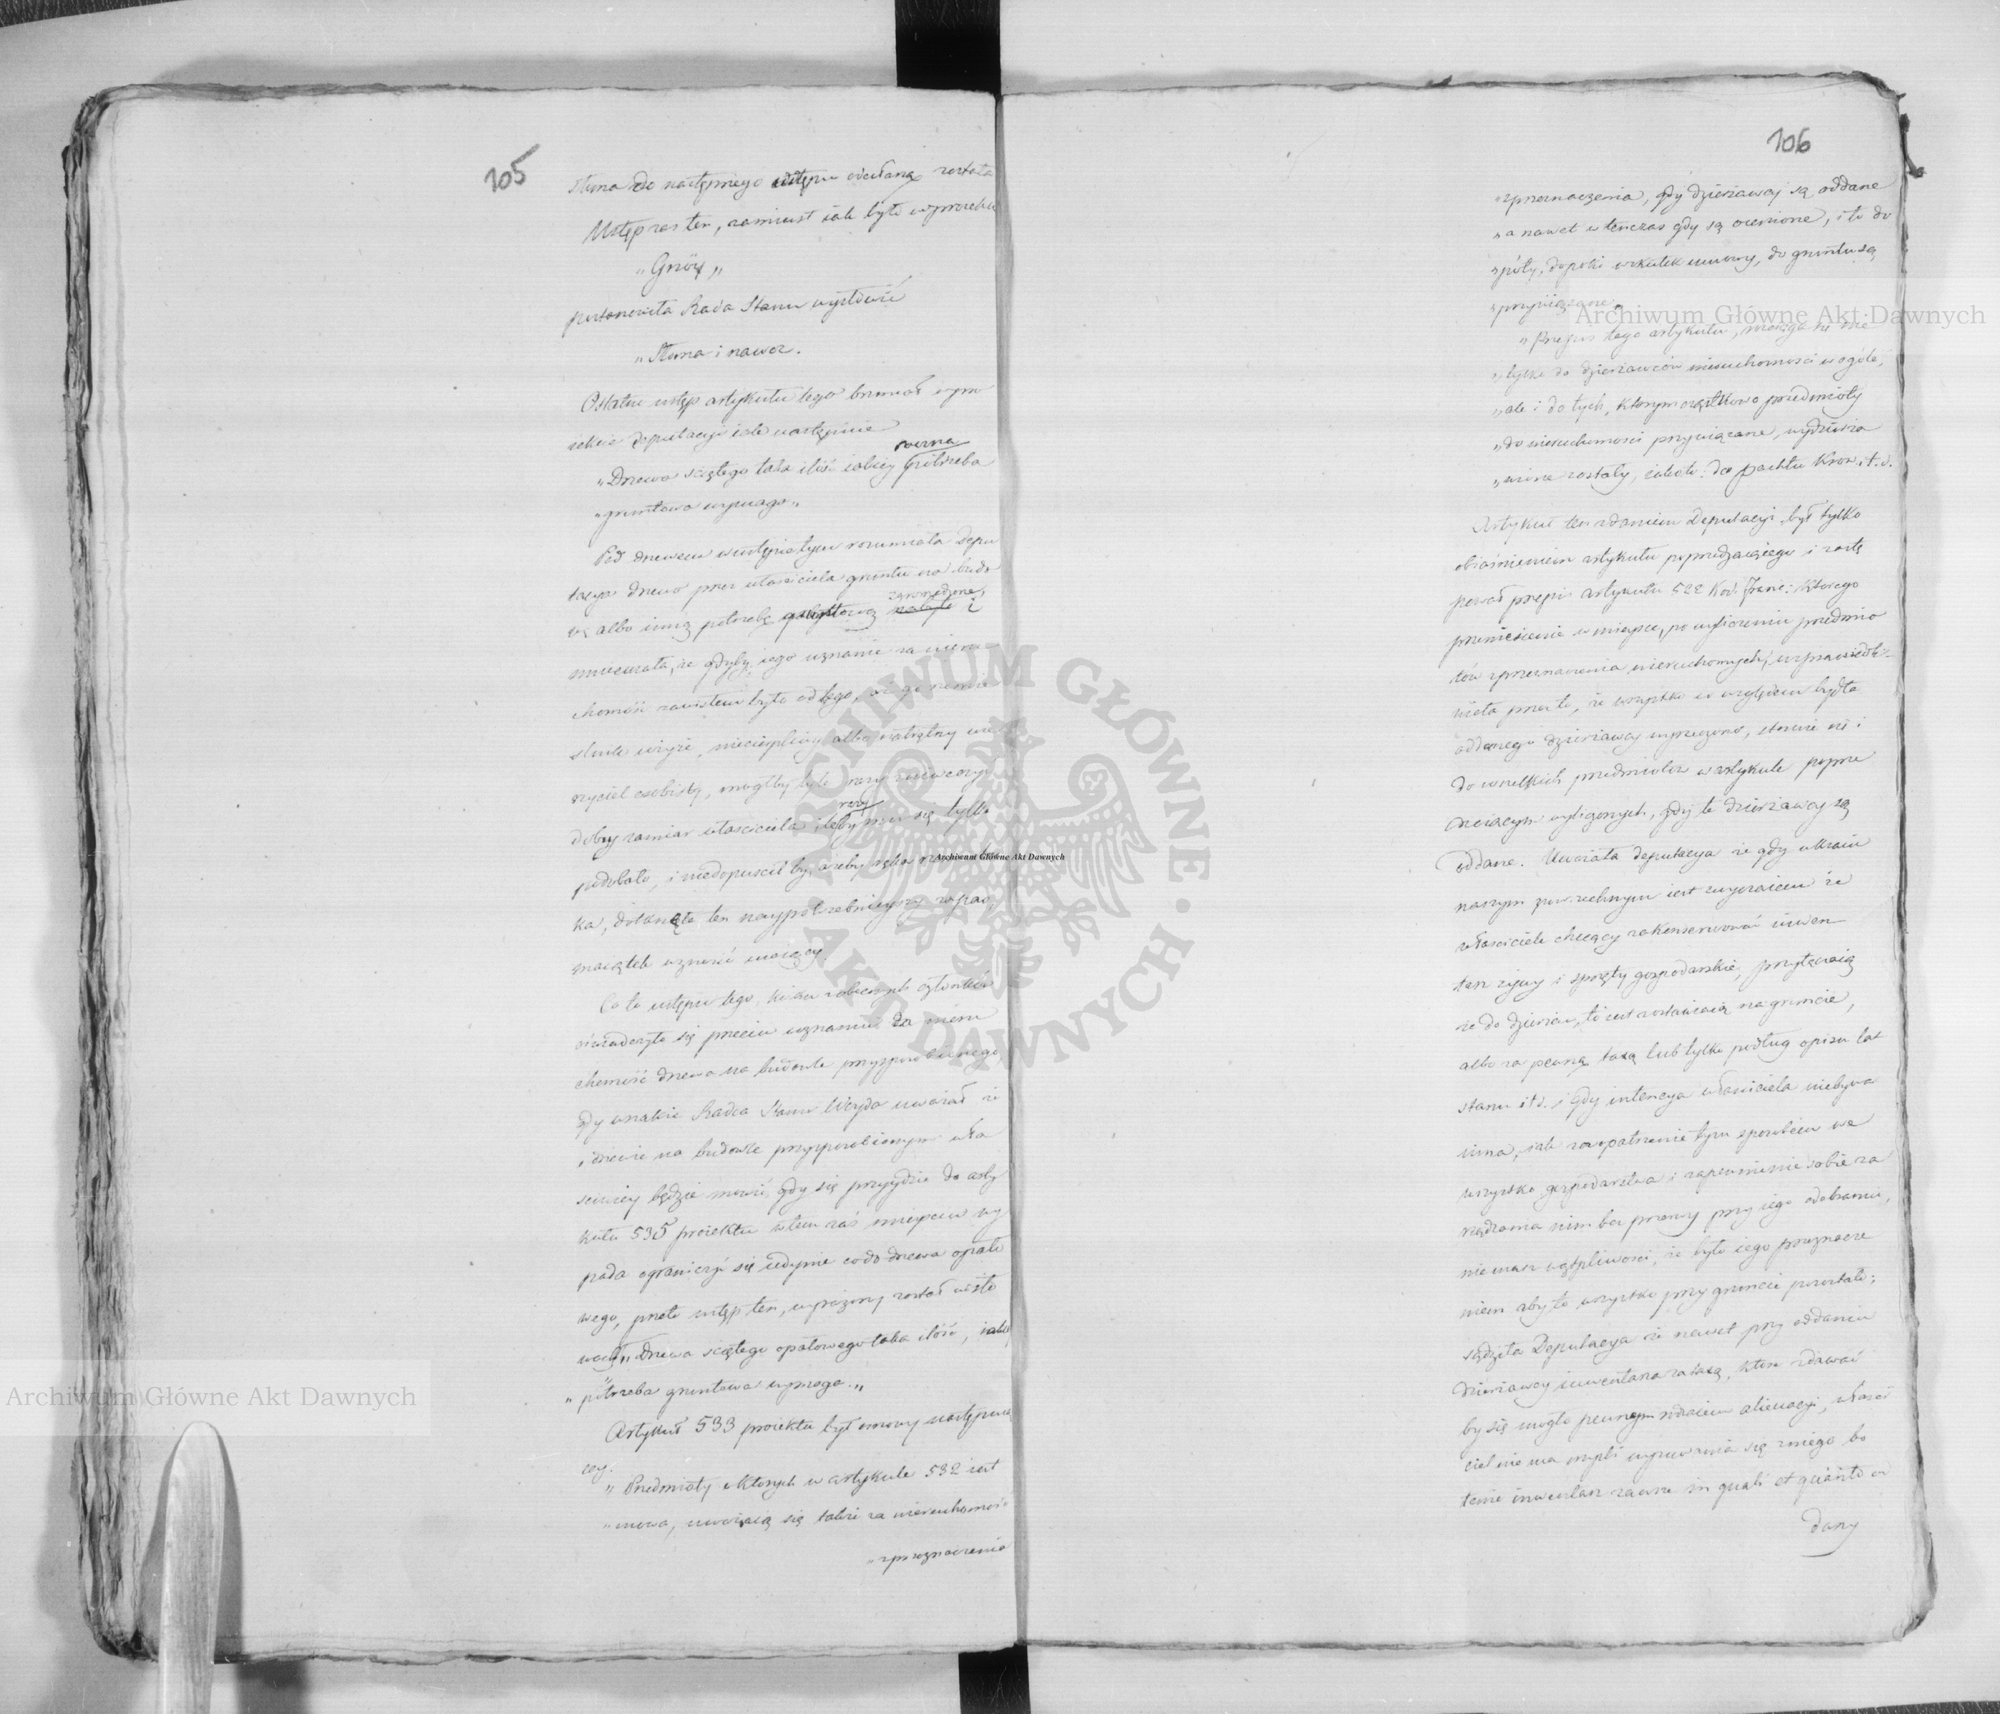 105
słoma do następnego ustępu odesłaną została
Ustęp zas ten, zamiast iak było w proiekcie
„Gnóy„
postanowiła Rada Stanu wysłowić
„Słoma i nawoz.
Ostatni ustęp artykułu tego brzmiał w pro
iekcie deputacyi iak następuie
rolna
„Drzewa sciętego taka ilość iakiey potrzeba
„gruntowa wymaga„
Pod drzewem w ustępie tym rozumiała Depu
tacya drzewo przez właściciela gruntu na budo
zgromadzone,
wę albo inną potrzebę i
mniemała, że gdyby iego uznanie za nieru
chomość zawisłem było od tego, że go
użyie, niecierpliwy albo natrętny wie
rzyciel osobisty, mogłby tyle razy zniweczyć
razy
dobry zamiar właściciela ileby mu się tylko
podobało, i niedopuscił by, ażeby ręka
ka, dotknęła ten naypotrzebnieyszy zapas
maiątek wznosić maiący.
Co do ustępu tego, kilku członków
oświadczyło się przeciw uznaniu za nieru
chomość drzewa na budowle przysposobionego,
gdy wszakże Radca Stanu Woyda uważał że
o drzewie na budowle przysposobionym wła
sciwiey będzie mowić, gdy się przyydzie do arty
kułu 535 proiektu w tem zaś mieyscu wy
pada ograniczyć się iedynie co do drzewa opało
wego, przeto ustęp ten, wyrażony został w sło
wach „Drzewa sciętego opałowego taka ilość, iakiey
„potrzeba gruntowa wymaga.„
Artykuł 533 proiektu był osnowy następuią
cey:
„Przedmioty o ktorych w artykule 532 iest
„mowa, uważaią się także za nieruchomości
„z przeznaczenia
106
„z przeznaczenia, gdy dzierżawcy są oddane
„a nawet w tenczas gdy są ocenione, i to do
„póty, dopoki w skutek umowy, do gruntu są
„przywiązane.
„Przepis tego artykułu, rozciąga się nie
„tylko do dzierżawców nieruchomości w ogóle,
„ale i do tych, ktorym cząstkowo przedmioty
„do nieruchomości przywiązane, wydzierża
„wione zostały, iakoto: do pachtu Krow. i t. d.
Artykuł ten zdaniem Deputacyi był tylko
obiaśnieniem artykułu poprzedzaiącego i zastę
pował przepis artykułu 522 Kod: Franc: ktorego
przeniesienie w mieysce, po wyliczeniu przedmio
tów z przeznaczenia nieruchomych, usprawiedli
wiała przez to, że wszystko co względem bydła
oddanego dzierżawcy wyrzeczono, stosuie się i
do wszelkich przedmiotów w artykule poprze
dzaiącym wyliczonych, gdy te dzierżawcy są
oddane. Uważała Deputacya że gdy w kraiu
naszym powszechnym iest zwyczaiem że
właściciele chcący zakonserwować inwen
tarz żywy i sprzęty gospodarskie, przyłączaią
ie do dzierżaw, to iest zostawiaią na gruncie,
albo za pewną taxą lub tylko podług opisu lat
stanu i t. d. i gdy intencya właściciela niebywa
inna, iak zaopatrzenie tym sposobem we
wszystko gospodarstwa i zapewnienie sobie za
rządzania nim bez przerwy przy iego odebraniu,
nie masz wątpliwosci, że było iego przeznacze
niem aby to wszystko przy gruncie pozostało;
sądziła Deputacya że nawet przy oddaniu
dzierżawcy inwentarza taxą, ktore zdawać
by się mogło pewnym rodzaiem alienacyi, właści
ciel nie ma mysli wyzuwania się z niego bo
temie inwentarz zawsze in quali et quanto od
dany